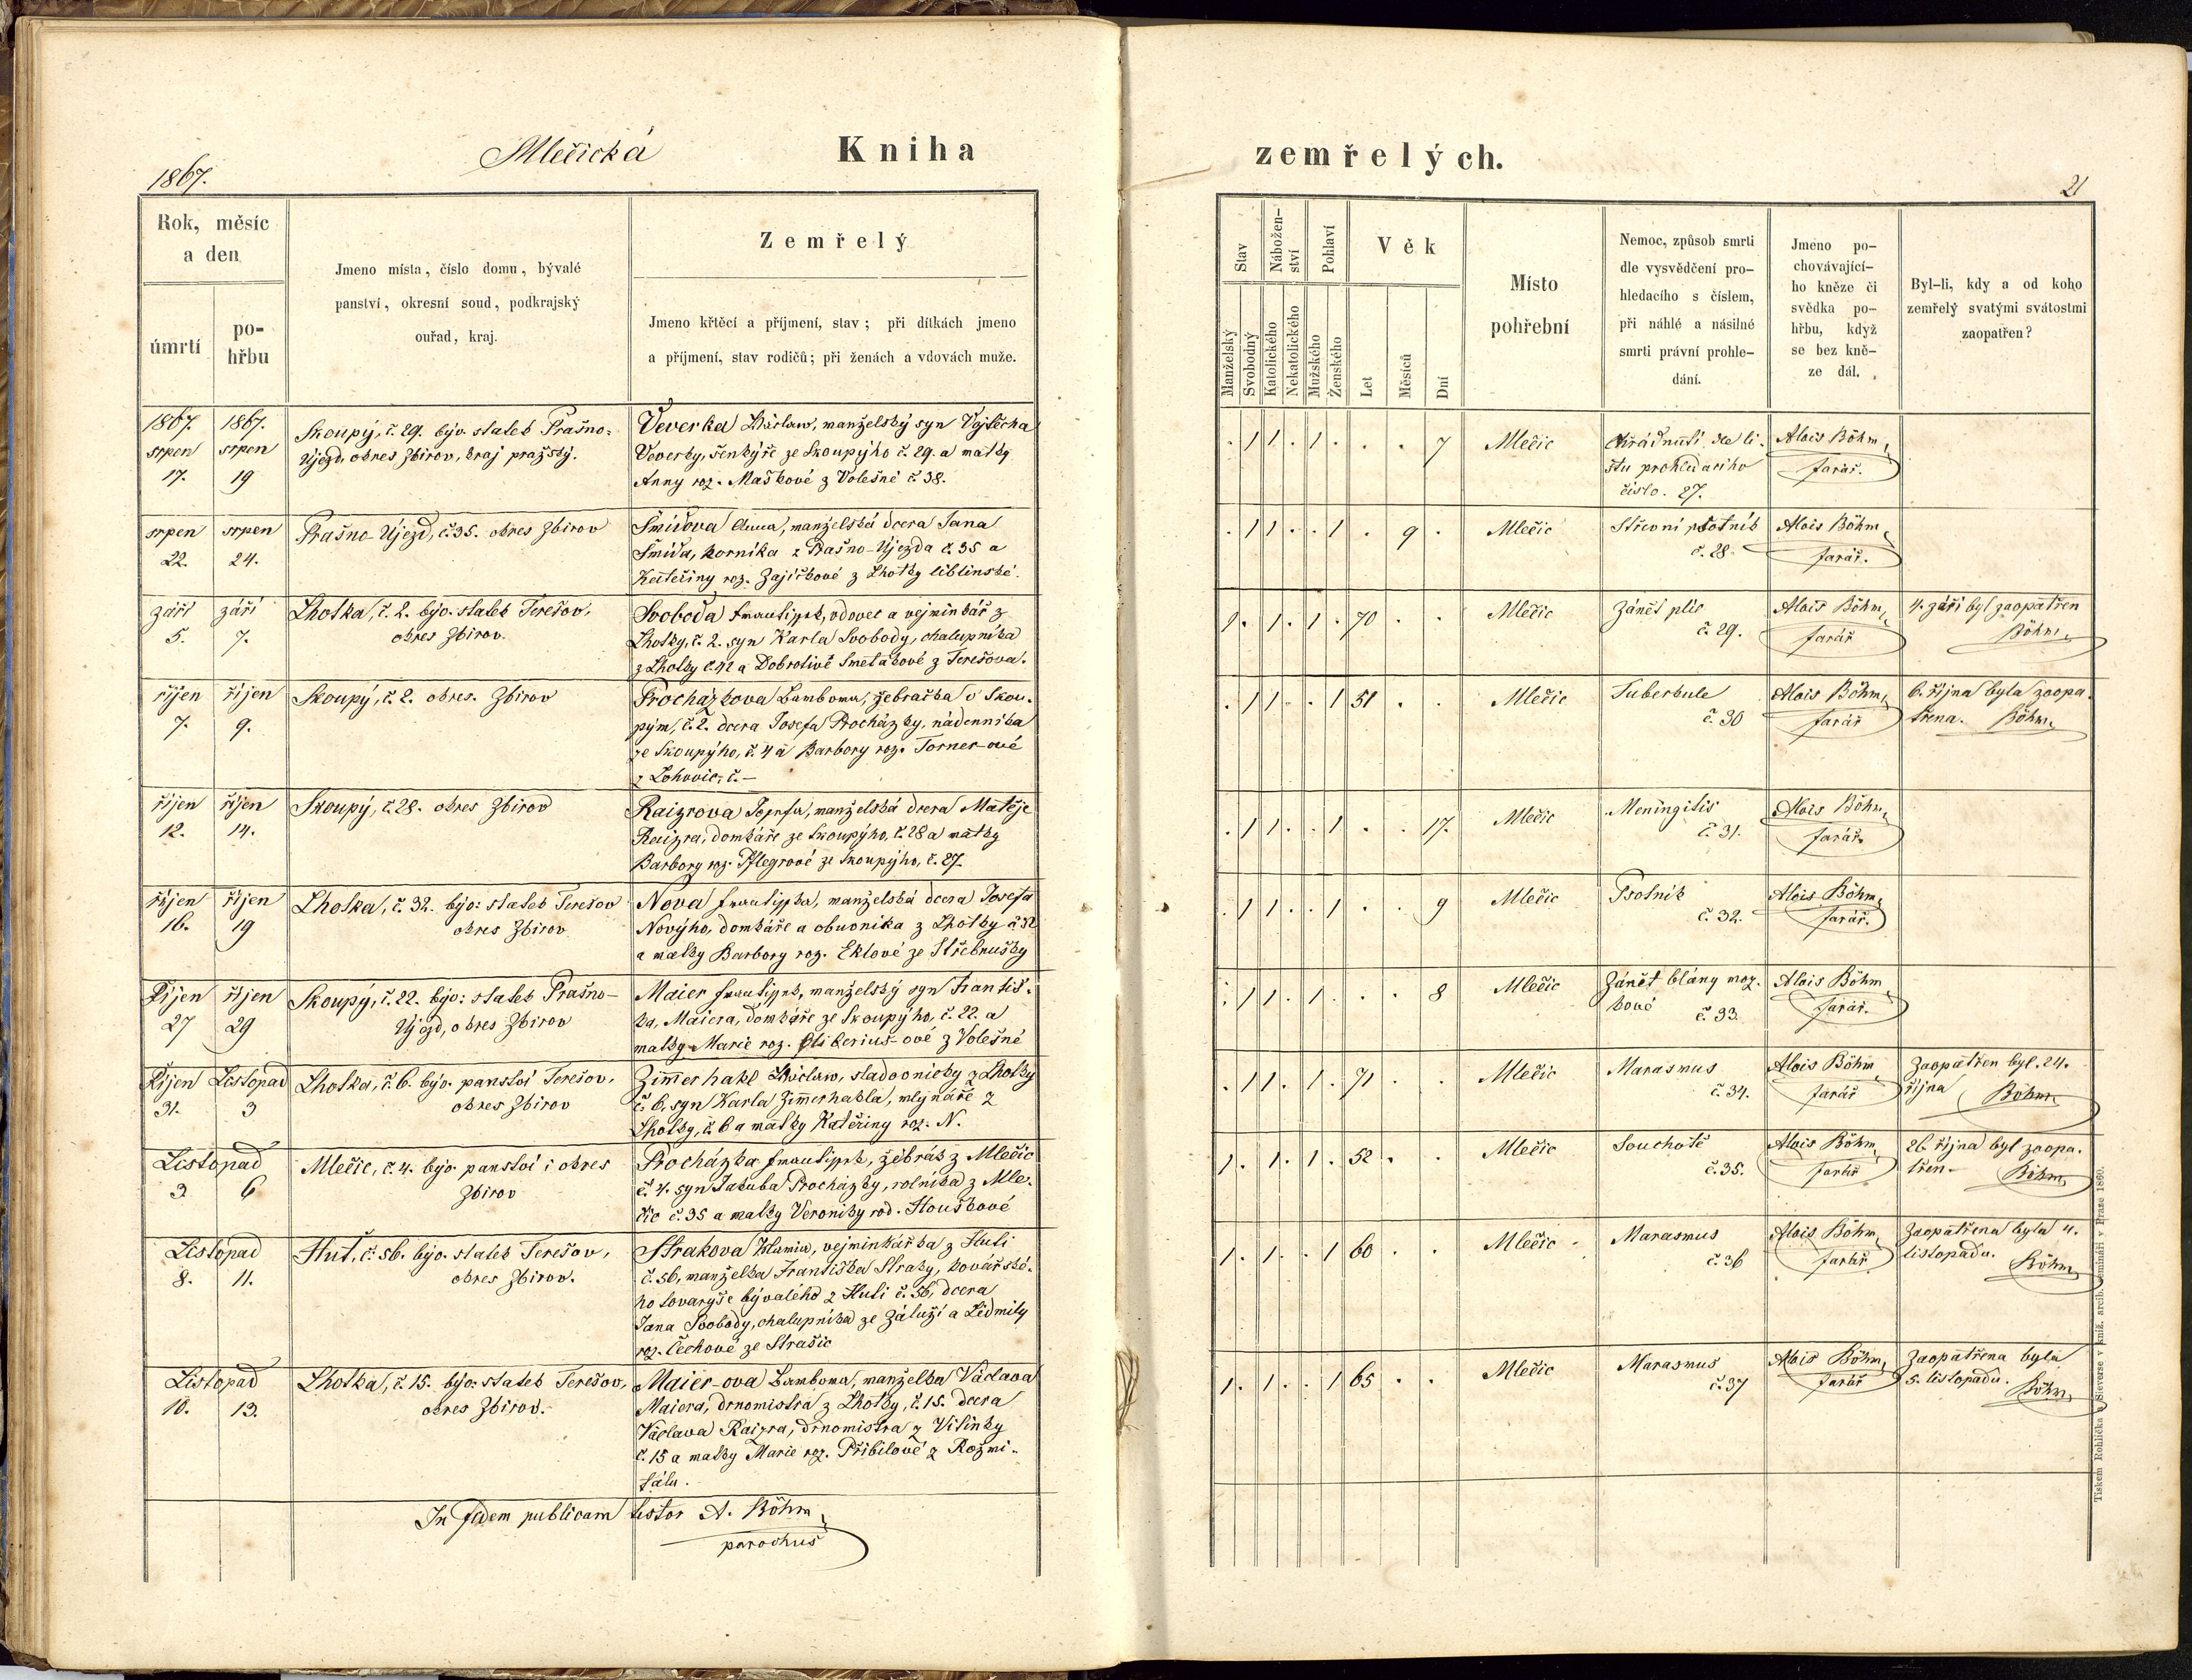 Mlečická Kniha zemřelých.
1867.
21
Rok, měsíc
a den
úmrtí
po-
hřbu
Jmeno místa, číslo domu, bývalé
panství, okresní soud, podkrajský
ouřad, kraj.
Zemřelý
Jmeno křtěcí a příjmení, stav; při dítkách jmeno
a příjmení, stav rodičů; při ženách a vdovách muže.
Stav
Nábožen-
ství
Pohlaví
Věk
Manželský
Svobodný
Katolického
Nekatolického
Mužského
Ženského
Let
Měsíců
Dní
Místo
pohřební
Nemoc, způsob smrti
dle vysvědčení pro-
hledacího s číslem,
při náhlé a násilné
smrti právní prohle-
dání.
Jmeno po-
chovávající-
ho kněze či
svědka po-
hřbu, když
se bez kně-
ze dál.
Byl-li, kdy a od koho
zemřelý svatými svátostmi
zaopatřen?
1867. 1867.
srpen srpen
17. 19
Skoupý, č. 29. býv. statek Prašno-
Újezd, okres Zbirov, kraj pražský.
Veverka Václav, manželský syn Vojtěcha
Veverky, šenkýře ze Skoupýho č. 29. a matky
Anny roz. Maškové z Volešné č. 38.
. 1 1 . 1 . . . 7
Mlečic
dle li-
stu prohledacího
číslo. 27.
Alois Böhm,
farář.
srpen srpen
22. 24.
Prašno-Újezd, č. 35. okres Zbirov
Šmídova Anna, manželská dcera Jana
Šmída, horníka z Prašno-Újezda č. 35 a
Kateřiny roz. Zajíčkové z Lhotky liblínské.
. 1 1 . . 1 . 9 .
Mlečic
Střevní psotník
č. 28.
Alois Böhm,
farář.
září září
5. 7.
Lhotka, č. 2. býv. statek Terešov,
okres Zbirov.
Svoboda František, vdovec a vejminkář z
Lhotky, č. 2. syn Karla Svobody, chalupníka
z Lhotky č. 42 a Dobrotivé Smetákové z Terešova.
1. 1. 1. 70 . .
Mlečic
Zánět plic
č. 29.
Alois Böhm,
farář
4. září byl zaopatřen
Böhm,
říjen říjen
7. 9.
Skoupý, č. 2. okres. Zbirov
Procházkova Barbora, žebračka v Skou-
pým, č. 2. dcera Josefa Procházky, nádenníka
ze Skoupýho, č. 4 a Barbory roz. Torner-ové
z Lohovic, č. —
. 1 1 . . 1 51 . .
Mlečic
Tuberkule
č. 30
Alois Böhm,
farář
6. října byla zaopa-
třena. Böhm,
říjen říjen
12. 14.
Skoupý, č. 28. okres Zbirov
Raizrova Josefa, manželská dcera Matěje
Raizra, domkáře ze Skoupýho, č. 28 a matky
Barbory roz. Pflegrové ze Skoupýho, č. 27.
. 1 1 . . 1 . . 17.
Mlečic
Meningitis
č. 31.
Alois Böhm,
farář.
říjen říjen
16. 19
Lhotka, č. 32. býv. statek Terešov
okres Zbirov
Nova Františka, manželská dcera Josefa
Novýho, domkáře a obuvníka z Lhotky č. 32
a matky Barbory roz. Eklové ze Střebnušky
. 1 1 . . 1 . . 9
Mlečic
Psotník
č. 32.
Alois Böhm,
farář.
Říjen říjen
27 29
Skoupý, č. 22. býv. statek Prašno-
Újezd, okres Zbirov
Maier František, manželský syn Františ-
ka, Maiera, domkáře ze Skoupýho, č. 22. a
matky Marie roz. z Volešné
. 1 1 . 1 . . . 8
Mlečic
Zánět blány moz-
kové č. 33.
Alois Böhm,
farář.
Říjen Listopad
31. 3
Lhotka, č. 6. býv. panství Terešov,
okres Zbirov
Zimmerhakl Václav, sladovnický z Lhotky
č. 6, syn Karla Zimmerhakla, mlynáře z
Lhotky, č. 6 a matky Kateřiny roz. N.
. 1 1 . 1 . 71 . .
Mlečic
Marasmus
č. 34.
Alois Böhm,
farář
Zaopatřen byl. 24.
října Böhm
Listopad
3 6
Mlečic, č. 4. býv. panství i okres
Zbirov
Procházka František, žebrák z Mlečic
č. 4. syn Jakuba Procházky, rolníka z Mle-
čic č. 35 a matky Veroniky rod. Houškové
1. 1. 1. 52 . .
Mlečic
Souchotě
č. 35.
Alois Böhm,
farář
26. října byl zaopa-
třen. Böhm,
Listopad
8. 11.
Huť, č. 56. býv. statek Terešov,
okres Zbirov.
Strakova, vejminkářka z Huti
č. 56, manželka Františka Straky, kovářské-
ho tovaryše bývalého z Huti č. 56, dcera
Jana Svobody, chalupníka ze Záluží a Lidmily
roz. Čechové ze Strašic
1. 1. . 1 60 . .
Mlečic
Marasmus
č. 36
Alois Böhm,
farář
Zaopatřena byla 4.
listopadu. Böhm,
Listopad
10. 13.
Lhotka, č. 15. býv. statek Terešov,
okres Zbirov.
Maier-ova Barbora, manželka Václava
Maiera, drnomistra z Lhotky, č. 15. dcera
Václava Raizra, drnomistra z Vitinky
č. 15 a matky Marie roz. Přibilové z Rožmi-
tálu.
1. 1. . 1 65 . .
Mlečic
Marasmus
č. 37
Alois Böhm,
farář
Zaopatřena byla
5. listopadu. Böhm,
In fidem publicam testor A. Böhm,
parochus
Tiskem Rohlíčka & Sieverse v kníž. arcib. semináři v Praze 1860.